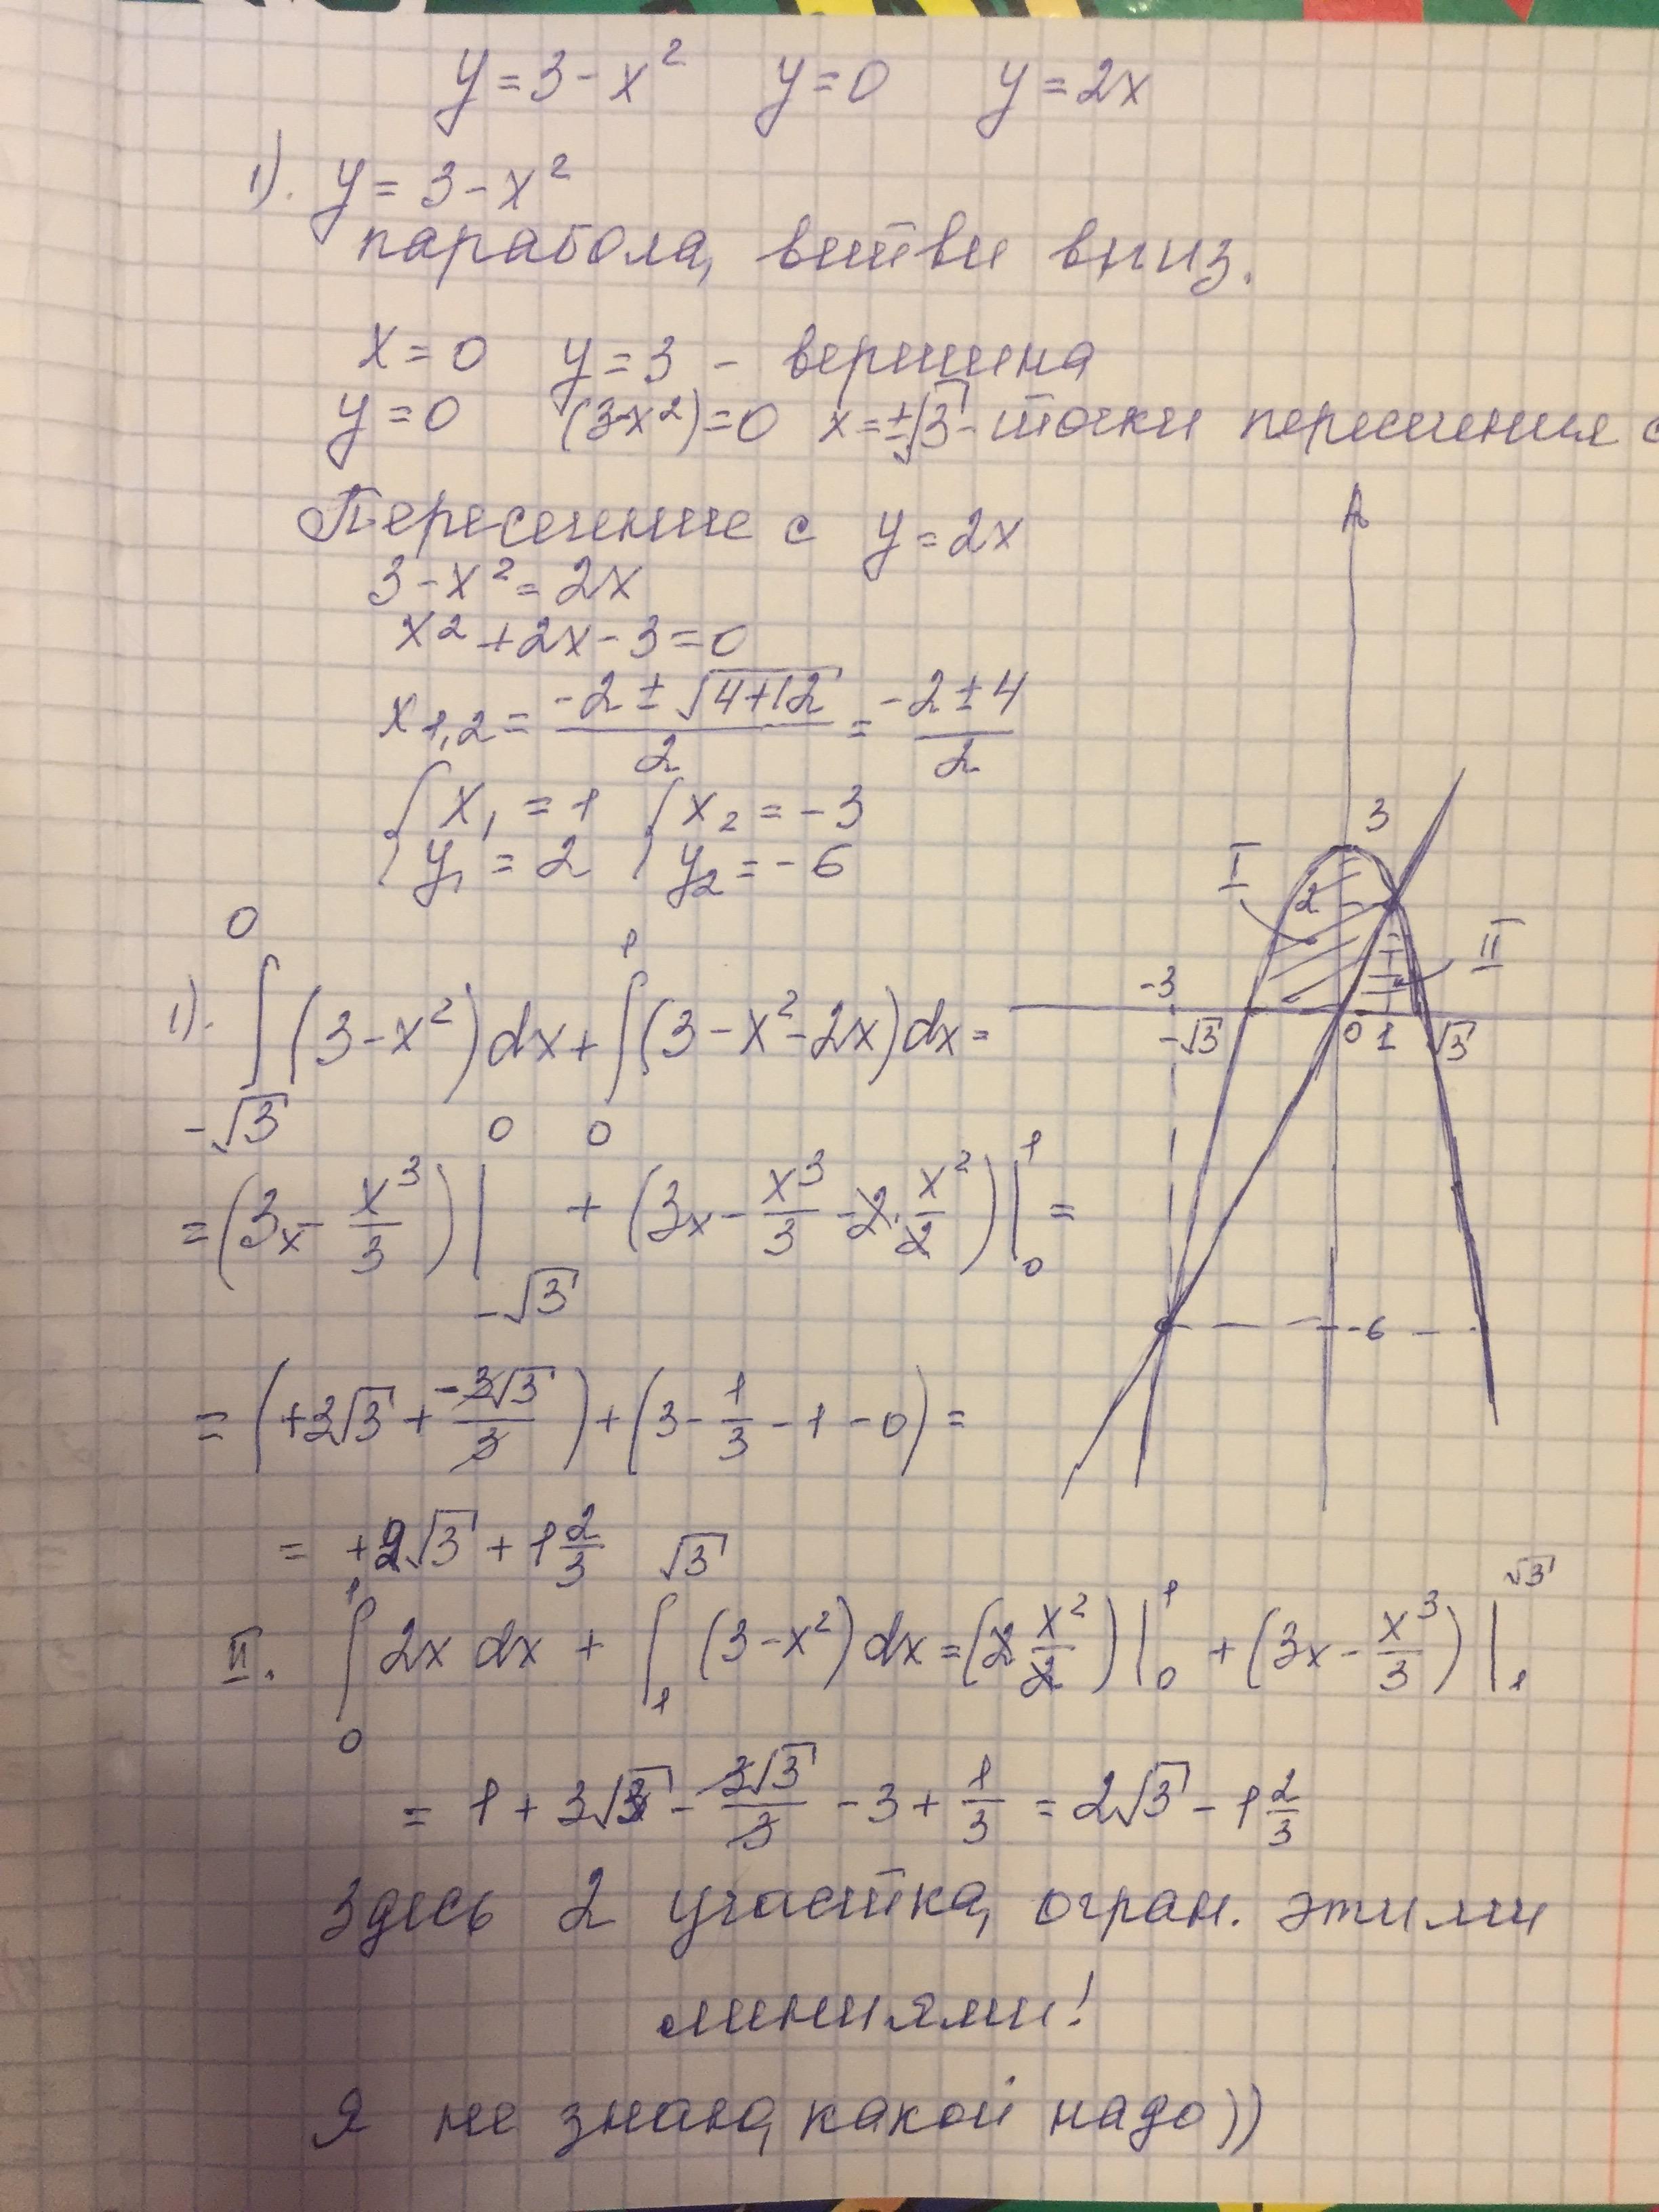 y = 3 - x² y = 0 y = 2x
1). y = 3 - x²
парабола, ветви вниз.
x = 0 y = 3 - вершина
y = 0 (3-x²) = 0 x = ±√3 - точки пересечения с
Пересечение с y = 2x
3 - x² = 2x
x² + 2x - 3 = 0
x₁,₂ = (-2 ± √(4+12))/2 = (-2 ± 4)/2
{ x₁ = 1 { x₂ = -3
{ y₁ = 2 { y₂ = -6
3
I
2
II
-3
-√3 0 1 √3
-6
1). ∫_{-√3}^{0} (3 - x²) dx + ∫_{0}^{1} (3 - x² - 2x) dx =
= (3x - x³/3) |_{-√3}^{0} + (3x - x³/3 - 2·x²/2) |_{0}^{1} =
= (+3√3 + (-3√3)/3) + (3 - 1/3 - 1 - 0) =
= +2√3 + 1 2/3
II. ∫_{0}^{1} 2x dx + ∫_{1}^{√3} (3 - x²) dx = (2 x²/2) |_{0}^{1} + (3x - x³/3) |_{1}^{√3}
= 1 + 3√3 - 3√3/3 - 3 + 1/3 = 2√3 - 1 2/3
Здесь 2 участка, огран. этими
линиями!
Я не знаю, какой надо))